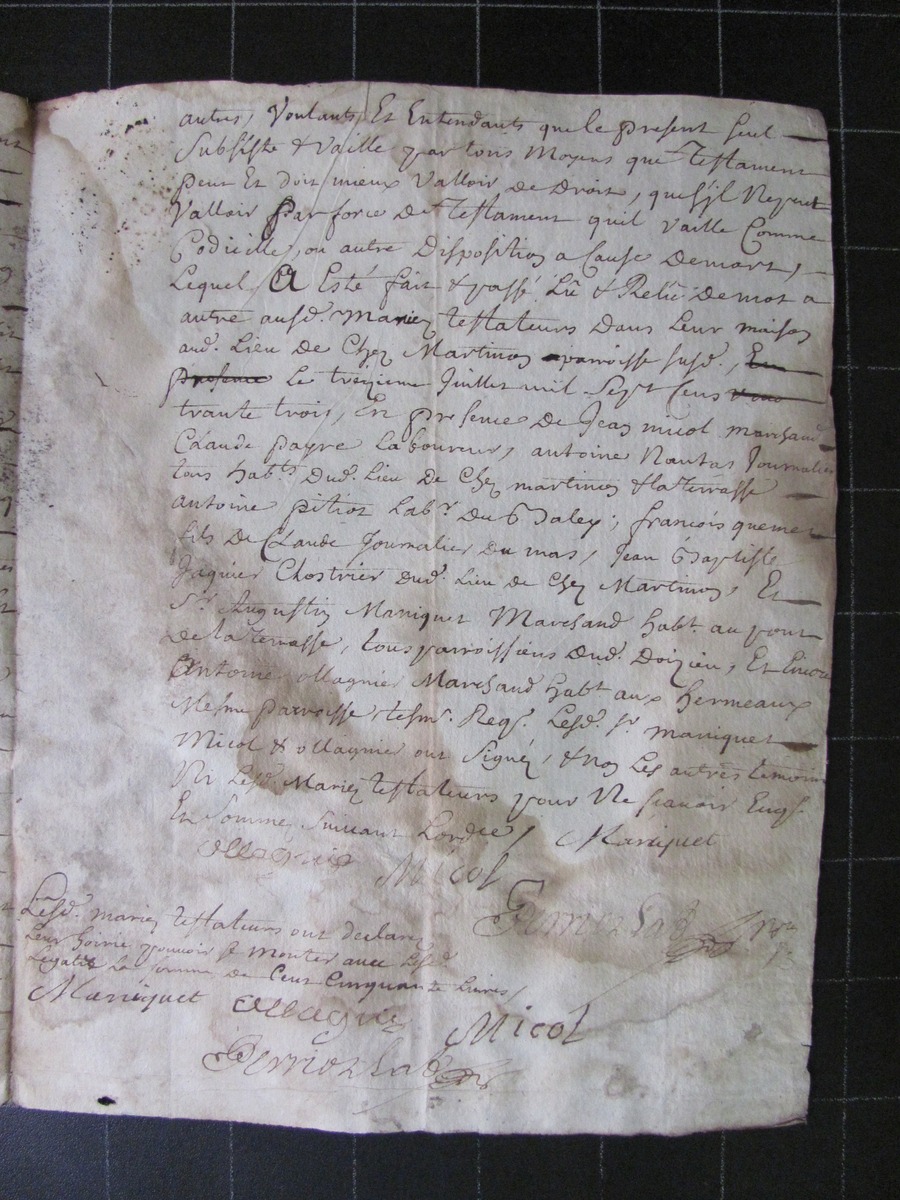 autres, Voulants Et Entendants que le present seul
Subsiste & Vaille par tous Moyens que Testament
peut Et doit mieux Valloir de Droit, que s'jl Ne peut
Valloir par force de Testament quil Vaille Comme
Codicille, ou autre Disposition a Cause Demort,
Lequel A Esté fait & passé Lû & Relû Demot a
autre ausd. Mariez testateurs Dans Leur maison
aud. Lieu de Chez Martinon parroisse susd., En
presence Le treizieme Juillet mil Sept Cens
trante trois, En presence de Jean micol marchand
Claude payre Laboureur, antoine Journalier
tous habts. Dud. Lieu de Chez martinon & la terrasse
antoine pitiot Labr. Du , françois quemet
fils de Claude Journalier du mas, Jean Baptiste
Jaquier dud. Lieu de Chez Martinon, Et
Sr. Augustin Maniquet Marchand habt. au pont
de la terrasse, tous parroissiens dud. Doizieu, Et Encor
Antoine ollagnier Marchand habt aux hermeaux
Mesme parroisse tesm. Req. Lesd. Sr. maniquet
Micol & ollagnier ont Signé, & non Les autres temoins
Ni Lesd. Mariez testateurs pour Ne sçavoir Enqs.
Et somme suivant Lordre, Maniquet
ollagnier Micol
Lesd. mariez testateurs ont declaré
Leur hoirie pouvoir se monter avec Lesd.
Legats La somme de Cent Cinquante Livres,
Maniquet ollagnier Micol